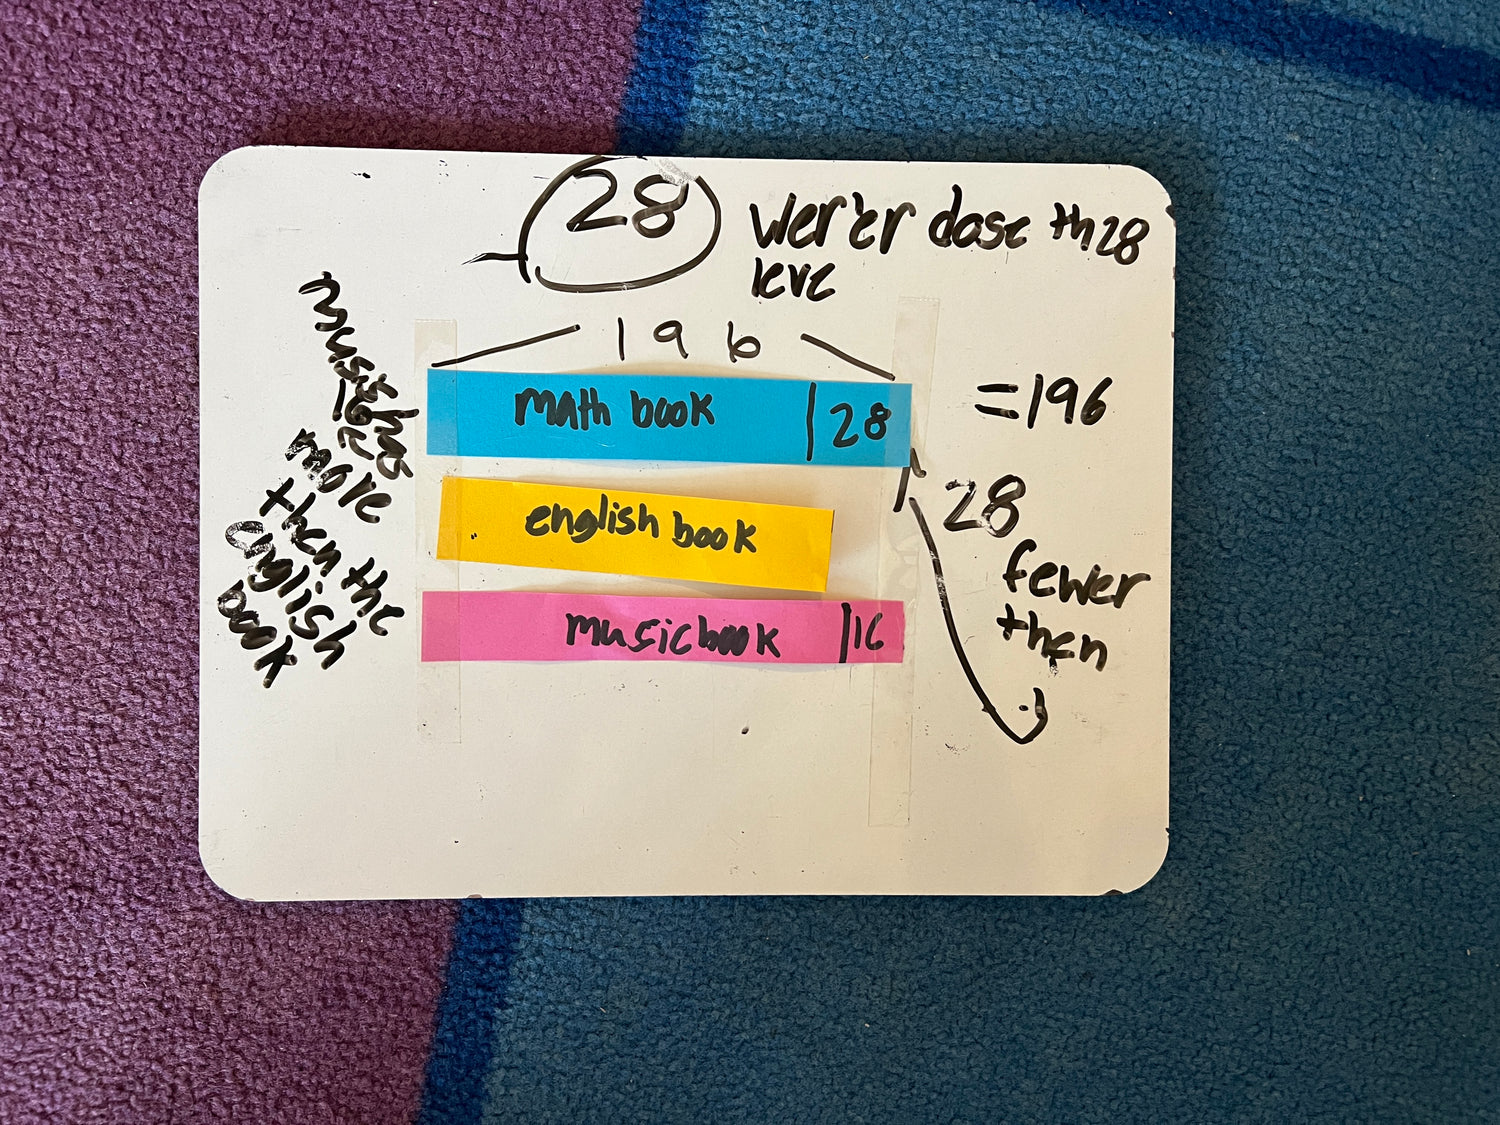 28
Wer'er dase th28
leve
196
math book | 28
= 196
english book
28
fewer
then
music book | 16
music has
more
then the
english
book